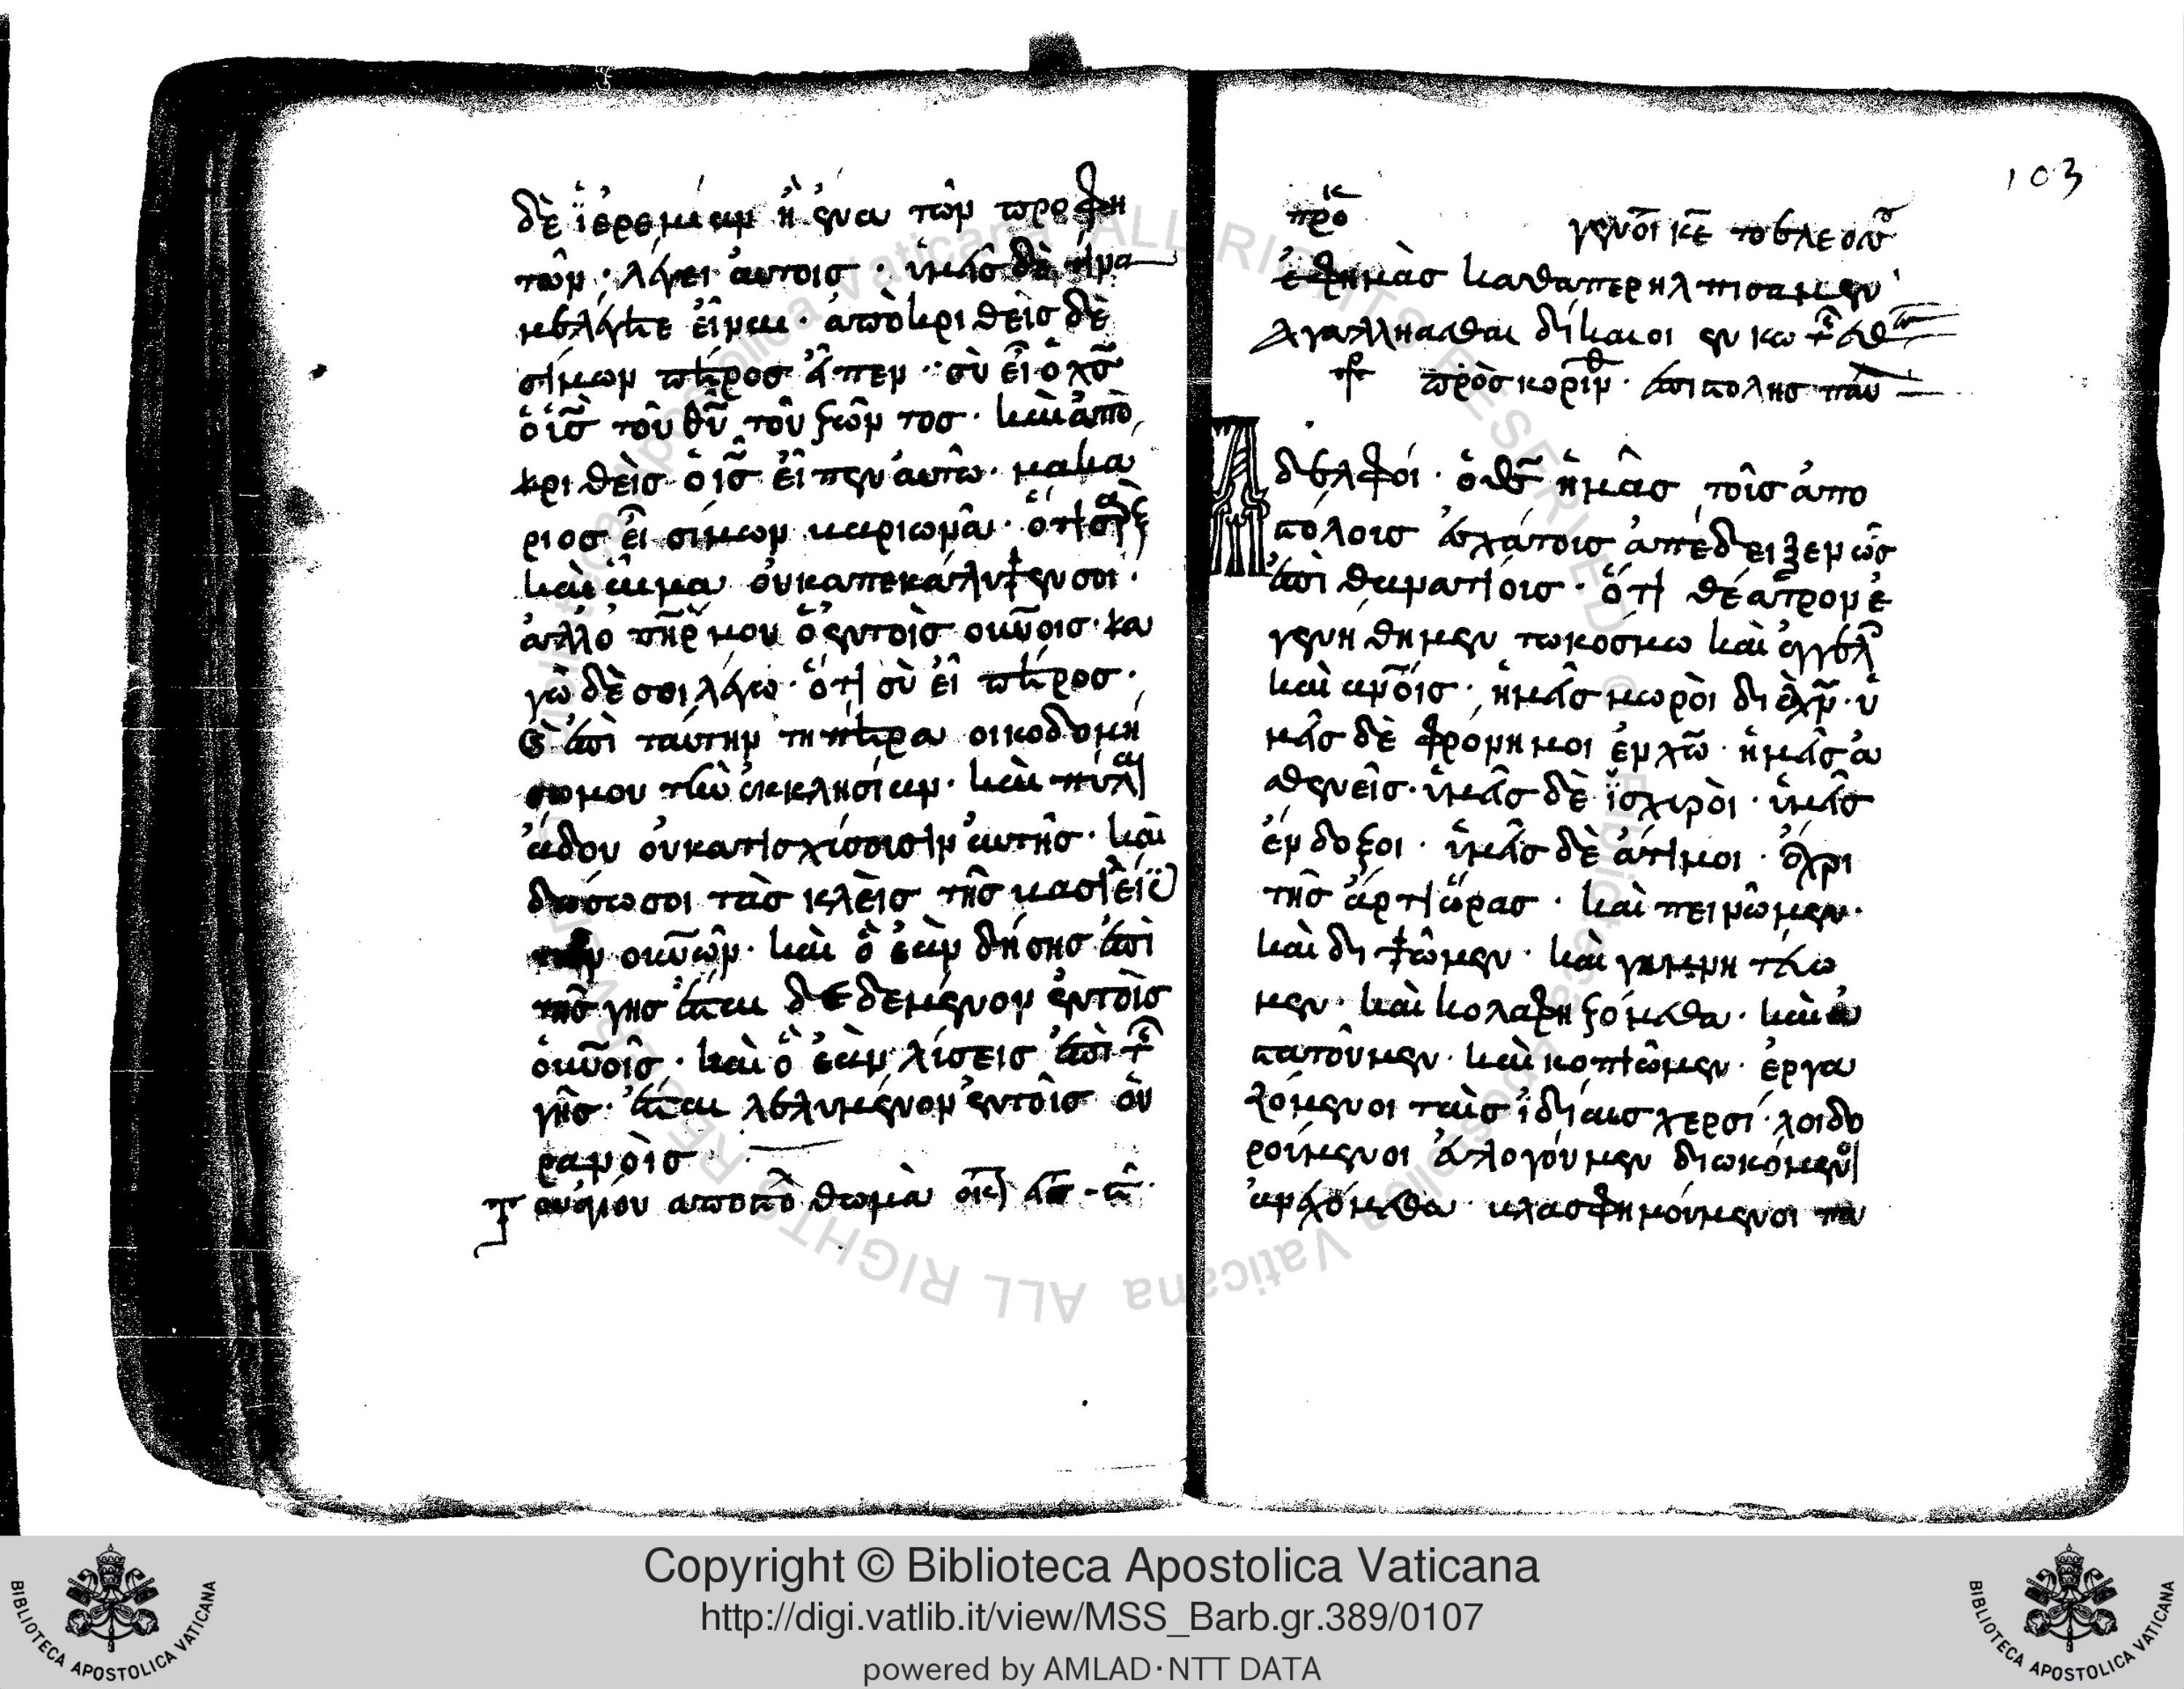 δὲ ἱερεμίαν ἢ ἕνα τῶν προφη
τῶν · λέγει αυτοισ · ὑμᾶσ δὲ τίνα
με λέγετε εἶναι · ἀποκριθεὶσ δὲ
σίμων πέτροσ εἶπεν · σὺ εἶ ὁ χς
ὁ υἱσ τοῦ θυ τοῦ ζῶντοσ · καὶ ἀπο
κριθεὶσ ὁ ισ εἶπεν αυτῶ · μακα
ριοσ εἶ σίμων βαριωνᾶ · ὅτι σὰρξ
καὶ αἷμα οὐκ απεκάλυψεν σοι ·
ἀλλο πηρ μου ὁ ἐντοῖσ ουνοισ · κα
γὼ δὲ σοι λέγω · ὅτι σὺ εἶ πέτροσ ·
ϗ ἐπὶ ταύτην τη πέτρα οικοδομή
σω μου τὴν ἐκκλησίαν · καὶ πύλαι
ἅδου οὐ κατισχίσουσιν αυτῆσ · καὶ
δώσω σοι τὰσ κλεὶσ τῆσ βασιλεί
τῶν ουνῶν · καὶ ὃ ἐὰν δήσησ ἐπὶ
τῆσ γησ ἔσται δεδεμένον ἐντοῖσ
ὀυνοῖσ · καὶ ὃ ἐὰν λίσεισ ἐπὶ τῆ
γῆσ · ἔσται λελυμένον ἐντοῖσ οὐ
ρανοῖσ
Τ αγίου αποστό θωμὰ
προκ γένοι κε το ελεοσ
ἐφημὰσ καθαπερ ηλπισαμεν
Αγαλλιασθαι δίκαιοι εν κω
πρὸσ κορινθ · ἐπιστολησ παυ
Αδελφοί · ὁ θς ἡμᾶσ τοῖσ ἀπο
στόλουσ ἐσχάτουσ ἀπέδειξεν ὡσ
ἐπι θανατίουσ · ὅτι θέατρον ἐ
γενηθημεν τω κοσμω καὶ ἀγγέλ
καὶ ανοισ · ἡμᾶσ μωροὶ διὰ χν · ὑ
μᾶσ δὲ φρόνημοι ἐν χω · ἡμᾶσ ἀ
σθενεῖσ · ὑμᾶσ δὲ ἰσχιροὶ · ὑμᾶσ
ἔνδοξοι · ἡμᾶσ δὲ ἄτιμοι · ἄχρι
τῆσ ἄρτι ὥρασ · καὶ πεινῶμεν ·
καὶ διψῶμεν · καὶ γυμνητέυω
μεν · καὶ κολαφηζόμεθα · καὶ ἀ
στατοῦμεν · καὶ κοπιῶμεν · ἐργα
ζόμενοι ταῖσ ἰδίαισ χερσί · λοιδο
ρούμενοι ἐυλογούμεν διωκόμενοι
ἀνεχόμεθα · βλασφημούμενοι πα
103
Copyright © Biblioteca Apostolica Vaticana
http://digi.vatlib.it/view/MSS_Barb.gr.389/0107
powered by AMLAD·NTT DATA
BIBLIOTECA APOSTOLICA VATICANA
BIBLIOTECA APOSTOLICA VATICANA